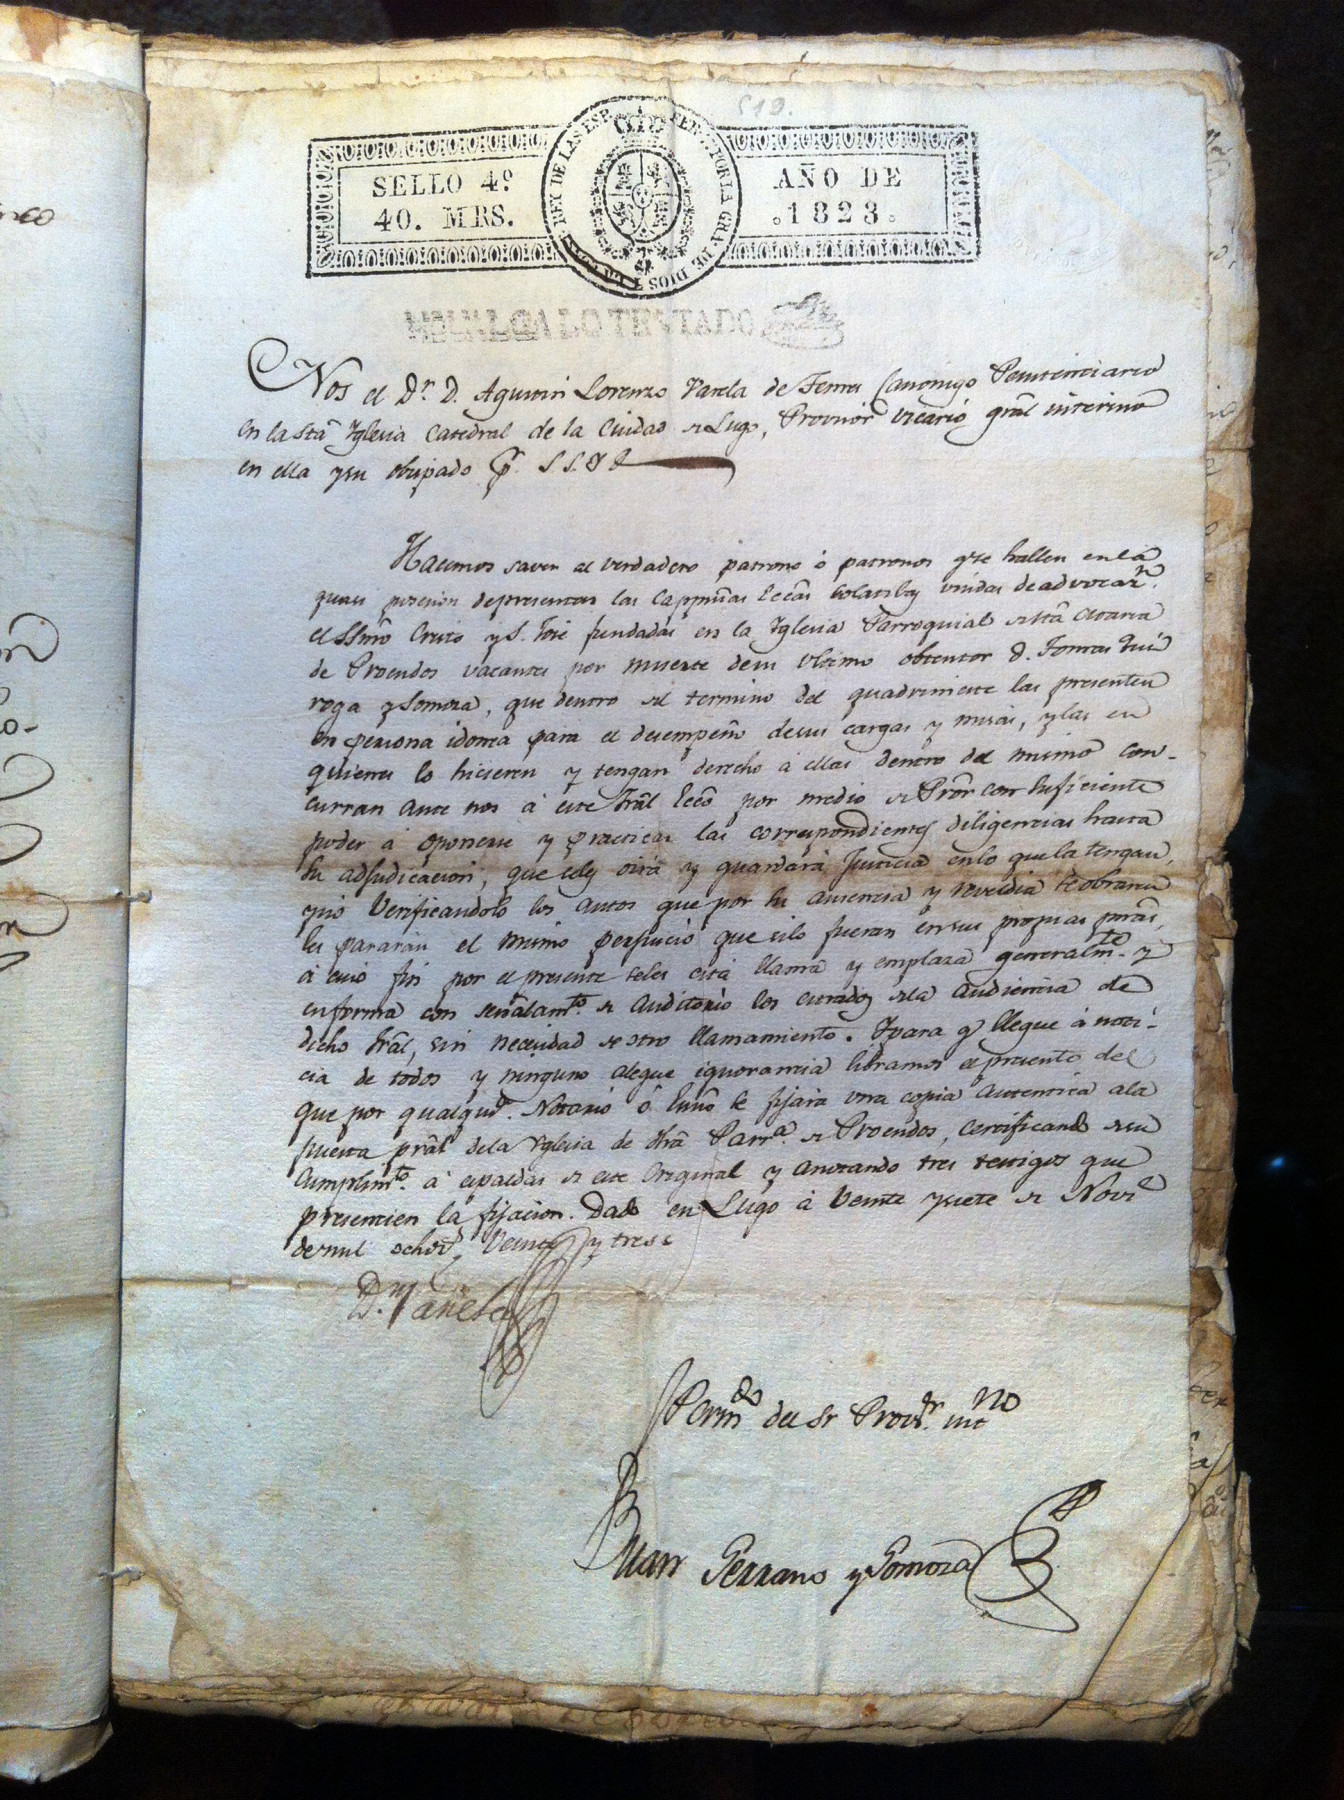 519.
SELLO 4º
40. MRS.
AÑO DE
1823.
FERN. 7 POR LA GRA. DE DIOS Y REY DE LAS ESP
Nos el Dr. D. Agustin Lorenzo Varela de Temes Canonigo Penitenciario
en la Sta Yglesia Catedral de la Ciudad de Lugo, Provisor Vicario gral interino
en ella y su obispado pr. S.S.Y.
Hacemos saver al verdadero patrono ó patronos qe se hallen en la
quasi posesion de presentar las Cappnias leccas colatibas unidas de advocaon.
el Ssmo Cristo y S. José fundadas en la Yglesia Parroquial de Sta Maria
de Proendos vacantes por muerte de su ultimo obtentor D. Tomas Qui
roga y Somoza, que dentro del termino del quadrimestre las presenten
en persona idonea para el desempeño de sus cargas y misas, y las en
quienes lo hicieren y tengan derecho á ellas dentro del mismo con-
curran ante nos á este Tral Ecco por medio de Pror con suficiente
poder á oponerse y practicar las correspondientes diligencias hasta
su adjudicacion, que se les oirá y guardará Justicia en lo que la tengan,
y no verificandolo los autos que por su ausencia y reveldia se obraren
les pararán el mismo perjuicio que si lo fueran en sus propias pnas,
á cuio fin por el presente se les cita llama y emplaza generalmte. y
en forma con señalamto. de Auditorio los estrados de la Audiencia de
dicho Tral, sin necesidad de otro llamamiento. Y para q llegue á noti-
cia de todos y ninguno alegue ignorancia libramos el presente del
que por qualqua. Notario ó se fijará una copia autentica á la
puerta pral de la Yglesia de dha Parra. de Proendos, certificando de su
cumplimto. á espaldas de este original y anotando tres testigos que
presencien la fijacion. Dado en Lugo á veinte y siete de Nove
de mil ochocs veinte y tres
Dr. Varela
Por mdo del Sr Provr. intno
Juan Serrano y Somoza